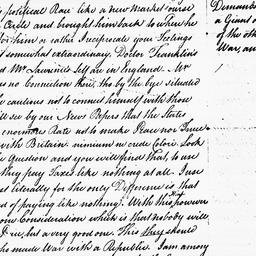 political Race like a new Market course
Circle and brought him back to where he
for him or rather I reciprocate your Feelings
somewhat extraordinary. Doctor Franklin's
and Mr Laurence's Self are in England. Mr
no Connection there, tho by the bye situated
be cautious not to commit himself with those
will see by our New Papers that the States
enormous Rate not to make Peace nor Truce
with Britain. nimium ne crede Colori. Look
Question and you will find that, to use
they pay Taxes like nothing at all. I use
literally for the only Difference is that
of paying like nothing. With this
your Consideration which is that nobody will
I see, but a very good one. This they should
who made War with a Republic. I am among
Demands
a Guard
of the oth
War, an